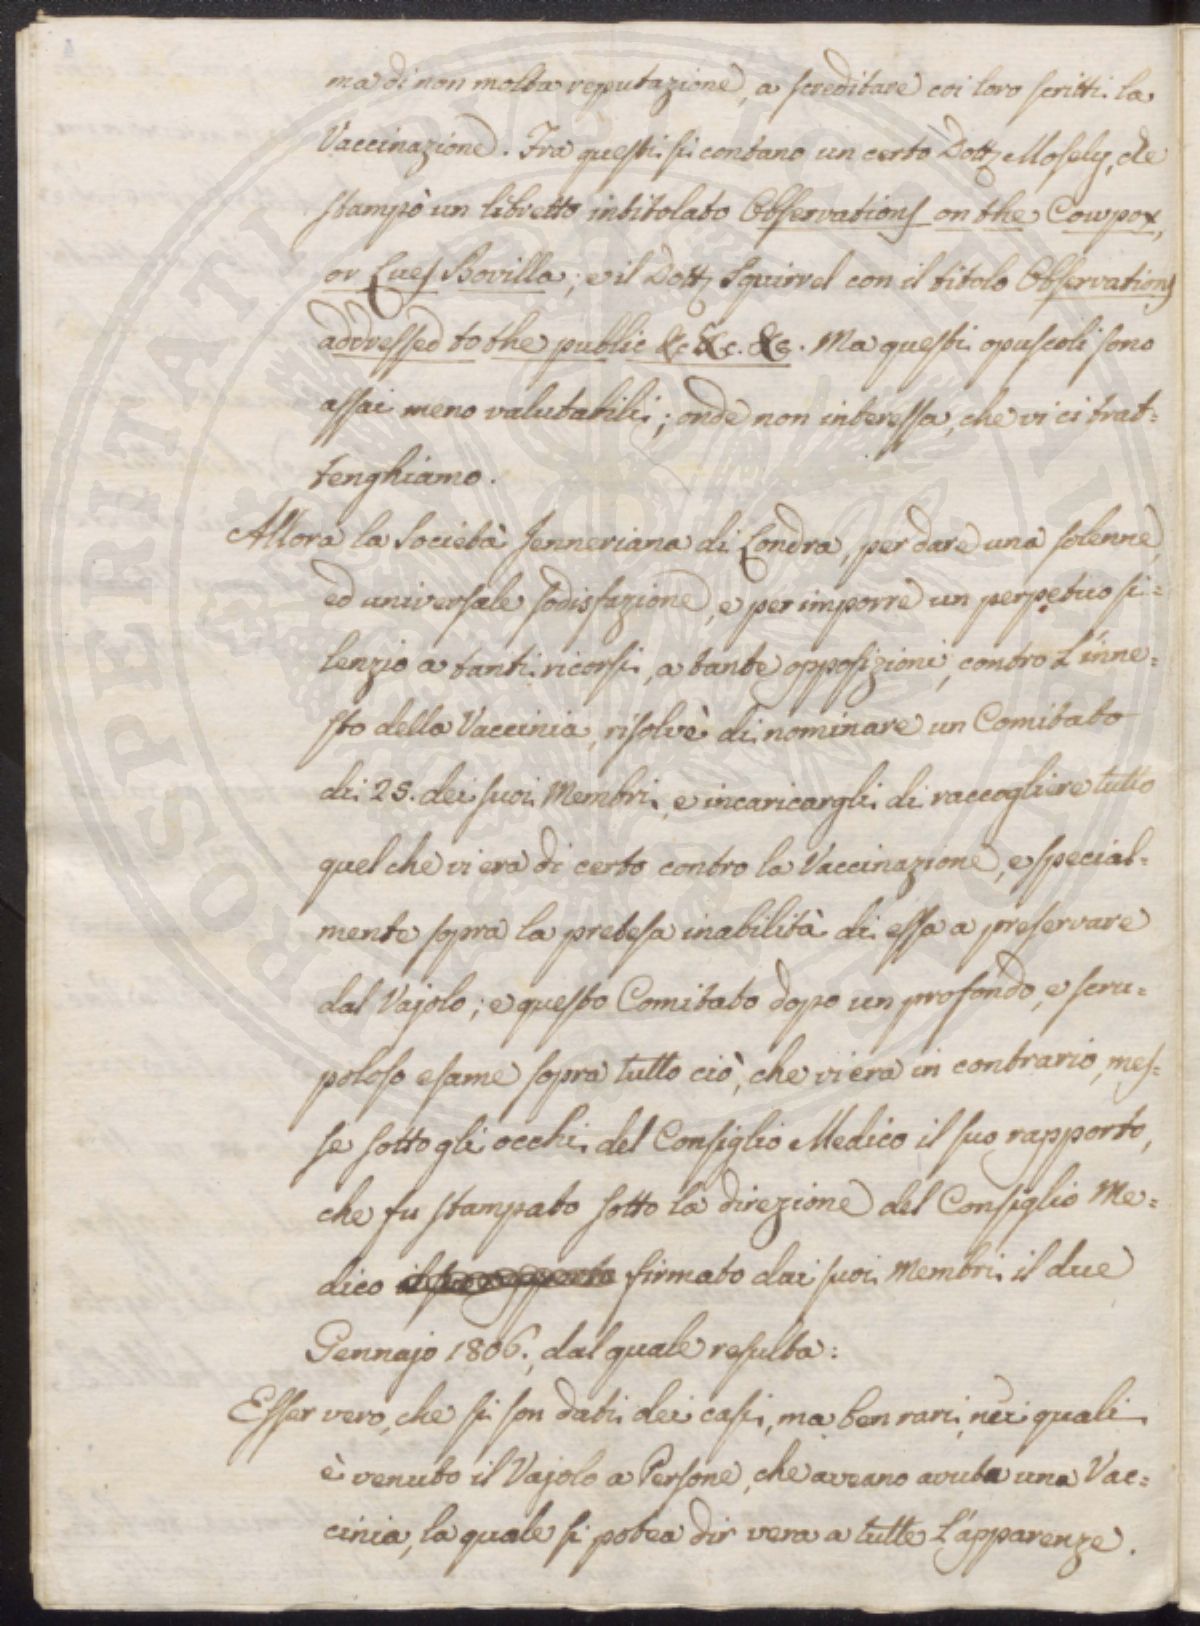 ma di non molta reputazione, a screditare coi loro scritti la
Vaccinazione. Fra questi si contano un certo Dott. Mosely, che
stampò un libretto intitolato Observations on the Cowpox,
or Lues Bovilla; e il Dott. Squirrel con il titolo Observations
addressed to the public &c &c. &c. Ma questi opuscoli sono
assai meno valutabili; onde non interessa, che vi ci trat=
tenghiamo.
Allora la Società Jenneriana di Londra, per dare una solenne,
ed universale sodisfazione, e per imporre un perpetuo si=
lenzio a tanti ricorsi, a tante opposizioni, contro l'inne=
sto della Vaccinia, risolvè di nominare un Comitato
di 25. dei suoi Membri, e incaricargli di raccogliere tutto
quel che vi era di certo contro la Vaccinazione, e special=
mente sopra la pretesa inabilità di essa a preservare
dal Vajolo; e questo Comitato dopo un profondo, e scru=
poloso esame sopra tutto ciò, che vi era in contrario, mes=
se sotto gli occhi del Consiglio Medico il suo rapporto,
che fu stampato sotto la direzione del Consiglio Me=
dico il suo rapporto firmato dai suoi Membri il due
Gennajo 1806., dal quale resulta:
Esser vero, che si son dati dei casi, ma ben rari, nei quali
è venuto il Vajolo a Persone, che aveano avuta una Vac=
cinia, la quale si potea dir vera a tutte l'apparenze.
PROSPERITATI PUBLICAE